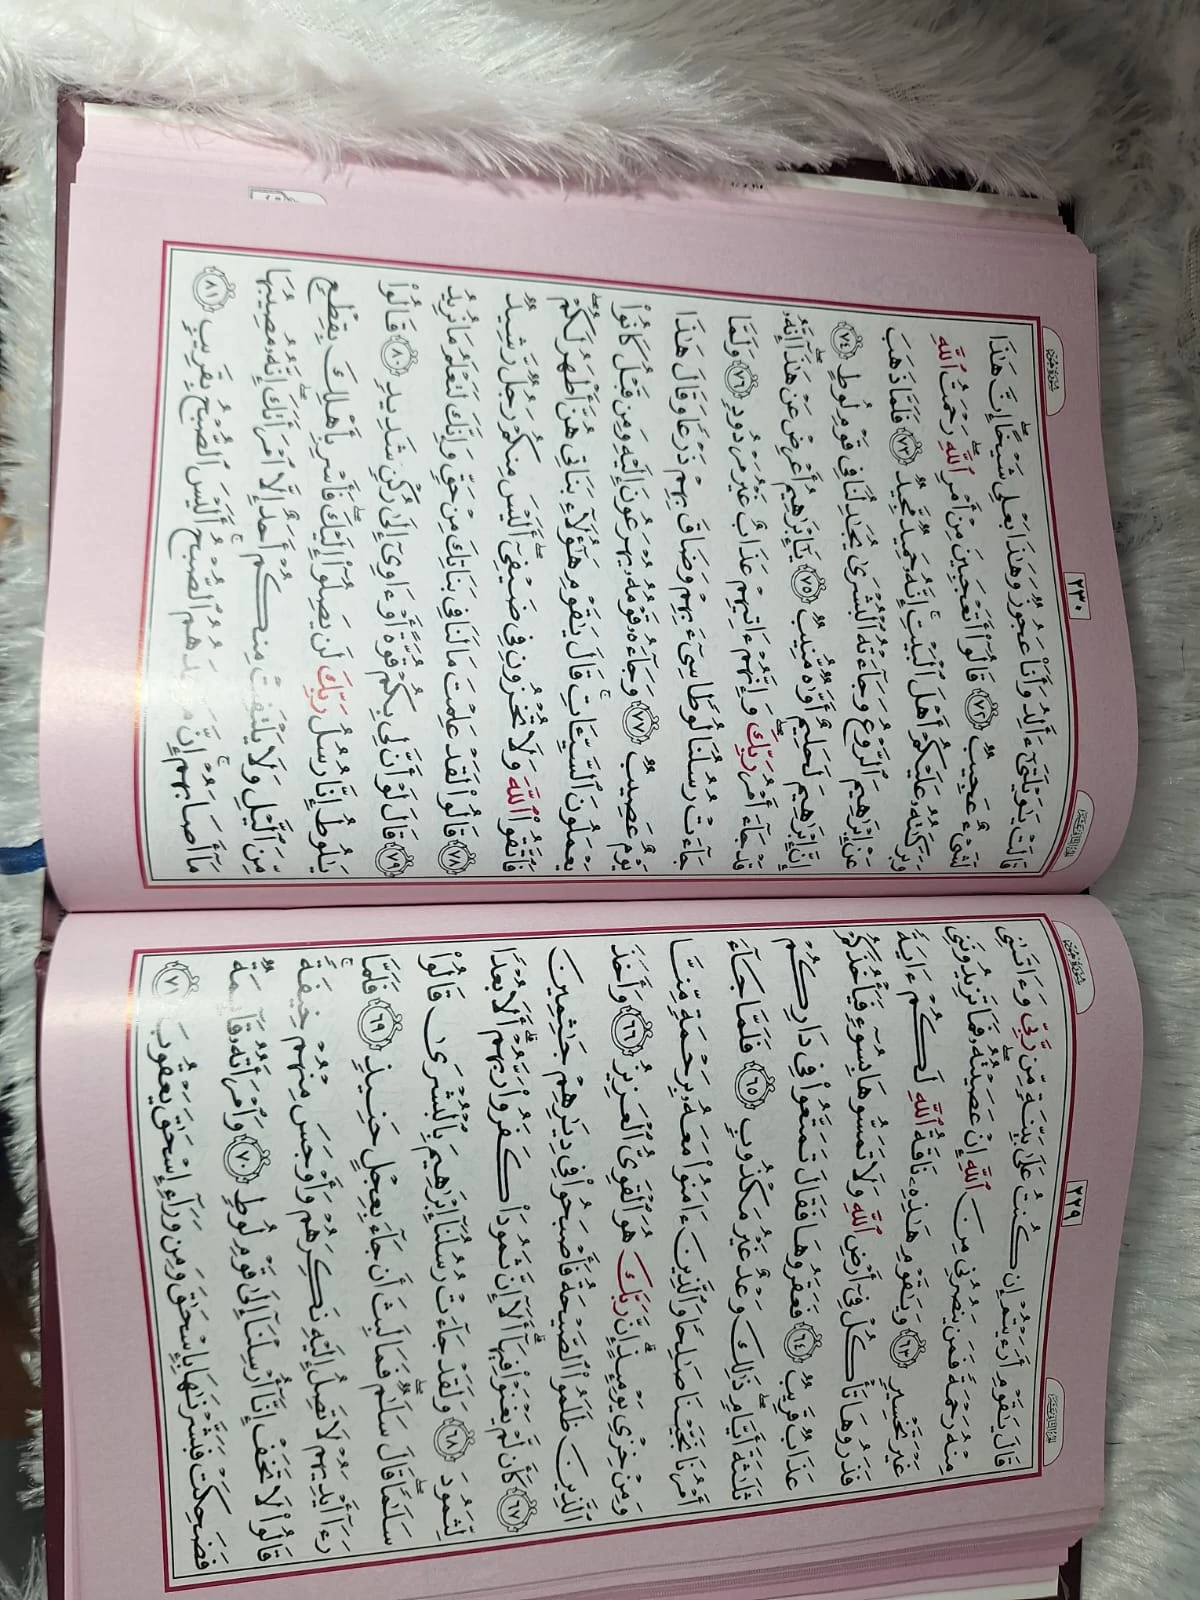 سُورَةُ هُودٍ
٢٢٩
الجزء الثاني عشر
قَالَ يَٰقَوْمِ أَرَءَيْتُمْ إِن كُنتُ عَلَىٰ بَيِّنَةٍ مِّن رَّبِّي وَءَاتَىٰنِي
مِنْهُ رَحْمَةً فَمَن يَنصُرُنِي مِنَ ٱللَّهِ إِنْ عَصَيْتُهُۥ فَمَا تَزِيدُونَنِي
غَيْرَ تَخْسِيرٍ ٦٣ وَيَٰقَوْمِ هَٰذِهِۦ نَاقَةُ ٱللَّهِ لَكُمْ ءَايَةً
فَذَرُوهَا تَأْكُلْ فِيٓ أَرْضِ ٱللَّهِ وَلَا تَمَسُّوهَا بِسُوٓءٍ فَيَأْخُذَكُمْ
عَذَابٌ قَرِيبٌ ٦٤ فَعَقَرُوهَا فَقَالَ تَمَتَّعُوا۟ فِي دَارِكُمْ
ثَلَٰثَةَ أَيَّامٍ ۖ ذَٰلِكَ وَعْدٌ غَيْرُ مَكْذُوبٍ ٦٥ فَلَمَّا جَآءَ
أَمْرُنَا نَجَّيْنَا صَٰلِحًا وَٱلَّذِينَ ءَامَنُوا۟ مَعَهُۥ بِرَحْمَةٍ مِّنَّا
وَمِنْ خِزْيِ يَوْمِئِذٍ ۗ إِنَّ رَبَّكَ هُوَ ٱلْقَوِيُّ ٱلْعَزِيزُ ٦٦ وَأَخَذَ
ٱلَّذِينَ ظَلَمُوا۟ ٱلصَّيْحَةُ فَأَصْبَحُوا۟ فِي دِيَٰرِهِمْ جَٰثِمِينَ
٦٧ كَأَن لَّمْ يَغْنَوْا۟ فِيهَآ ۗ أَلَآ إِنَّ ثَمُودَا۟ كَفَرُوا۟ رَبَّهُمْ ۗ أَلَا بُعْدًا
لِّثَمُودَ ٦٨ وَلَقَدْ جَآءَتْ رُسُلُنَآ إِبْرَٰهِيمَ بِٱلْبُشْرَىٰ قَالُوا۟
سَلَٰمًا ۖ قَالَ سَلَٰمٌ ۖ فَمَا لَبِثَ أَن جَآءَ بِعِجْلٍ حَنِيذٍ ٦٩ فَلَمَّا
رَءَآ أَيْدِيَهُمْ لَا تَصِلُ إِلَيْهِ نَكِرَهُمْ وَأَوْجَسَ مِنْهُمْ خِيفَةً ۚ
قَالُوا۟ لَا تَخَفْ إِنَّآ أُرْسِلْنَآ إِلَىٰ قَوْمِ لُوطٍ ٧٠ وَٱمْرَأَتُهُۥ قَآئِمَةٌ
فَضَحِكَتْ فَبَشَّرْنَٰهَا بِإِسْحَٰقَ وَمِن وَرَآءِ إِسْحَٰقَ يَعْقُوبَ ٧١
سُورَةُ هُودٍ
٢٣٠
الجزء الثاني عشر
قَالَتْ يَٰوَيْلَتَىٰٓ ءَأَلِدُ وَأَنَا۠ عَجُوزٌ وَهَٰذَا بَعْلِي شَيْخًا ۖ إِنَّ هَٰذَا
لَشَيْءٌ عَجِيبٌ ٧٢ قَالُوٓا۟ أَتَعْجَبِينَ مِنْ أَمْرِ ٱللَّهِ ۖ رَحْمَتُ ٱللَّهِ
وَبَرَكَٰتُهُۥ عَلَيْكُمْ أَهْلَ ٱلْبَيْتِ ۚ إِنَّهُۥ حَمِيدٌ مَّجِيدٌ ٧٣ فَلَمَّا ذَهَبَ
عَنْ إِبْرَٰهِيمَ ٱلرَّوْعُ وَجَآءَتْهُ ٱلْبُشْرَىٰ يُجَٰدِلُنَا فِي قَوْمِ لُوطٍ ٧٤
إِنَّ إِبْرَٰهِيمَ لَحَلِيمٌ أَوَّٰهٌ مُّنِيبٌ ٧٥ يَٰٓإِبْرَٰهِيمُ أَعْرِضْ عَنْ هَٰذَآ ۖ إِنَّهُۥ
قَدْ جَآءَ أَمْرُ رَبِّكَ ۖ وَإِنَّهُمْ ءَاتِيهِمْ عَذَابٌ غَيْرُ مَرْدُودٍ ٧٦ وَلَمَّا
جَآءَتْ رُسُلُنَا لُوطًا سِيٓءَ بِهِمْ وَضَاقَ بِهِمْ ذَرْعًا وَقَالَ هَٰذَا
يَوْمٌ عَصِيبٌ ٧٧ وَجَآءَهُۥ قَوْمُهُۥ يُهْرَعُونَ إِلَيْهِ وَمِن قَبْلُ كَانُوا۟
يَعْمَلُونَ ٱلسَّيِّـَٔاتِ ۚ قَالَ يَٰقَوْمِ هَٰٓؤُلَآءِ بَنَاتِي هُنَّ أَطْهَرُ لَكُمْ ۖ
فَٱتَّقُوا۟ ٱللَّهَ وَلَا تُخْزُونِ فِي ضَيْفِيٓ ۖ أَلَيْسَ مِنكُمْ رَجُلٌ رَّشِيدٌ
٧٨ قَالُوا۟ لَقَدْ عَلِمْتَ مَا لَنَا فِي بَنَاتِكَ مِنْ حَقٍّ وَإِنَّكَ لَتَعْلَمُ مَا نُرِيدُ
٧٩ قَالَ لَوْ أَنَّ لِي بِكُمْ قُوَّةً أَوْ ءَاوِيٓ إِلَىٰ رُكْنٍ شَدِيدٍ ٨٠ قَالُوا۟
يَٰلُوطُ إِنَّا رُسُلُ رَبِّكَ لَن يَصِلُوٓا۟ إِلَيْكَ ۖ فَأَسْرِ بِأَهْلِكَ بِقِطْعٍ
مِّنَ ٱلَّيْلِ وَلَا يَلْتَفِتْ مِنكُمْ أَحَدٌ إِلَّا ٱمْرَأَتَكَ ۖ إِنَّهُۥ مُصِيبُهَا
مَآ أَصَابَهُمْ ۚ إِنَّ ٱلصُّبْحُ ۚ أَلَيْسَ ٱلصُّبْحُ بِقَرِيبٍ ٨١